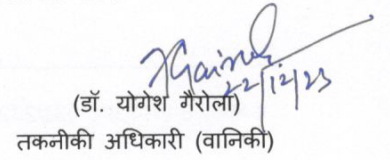 YGairola
22/12/23
(डॉ. योगेश गैरोला)
तकनीकी अधिकारी (वानिकी)